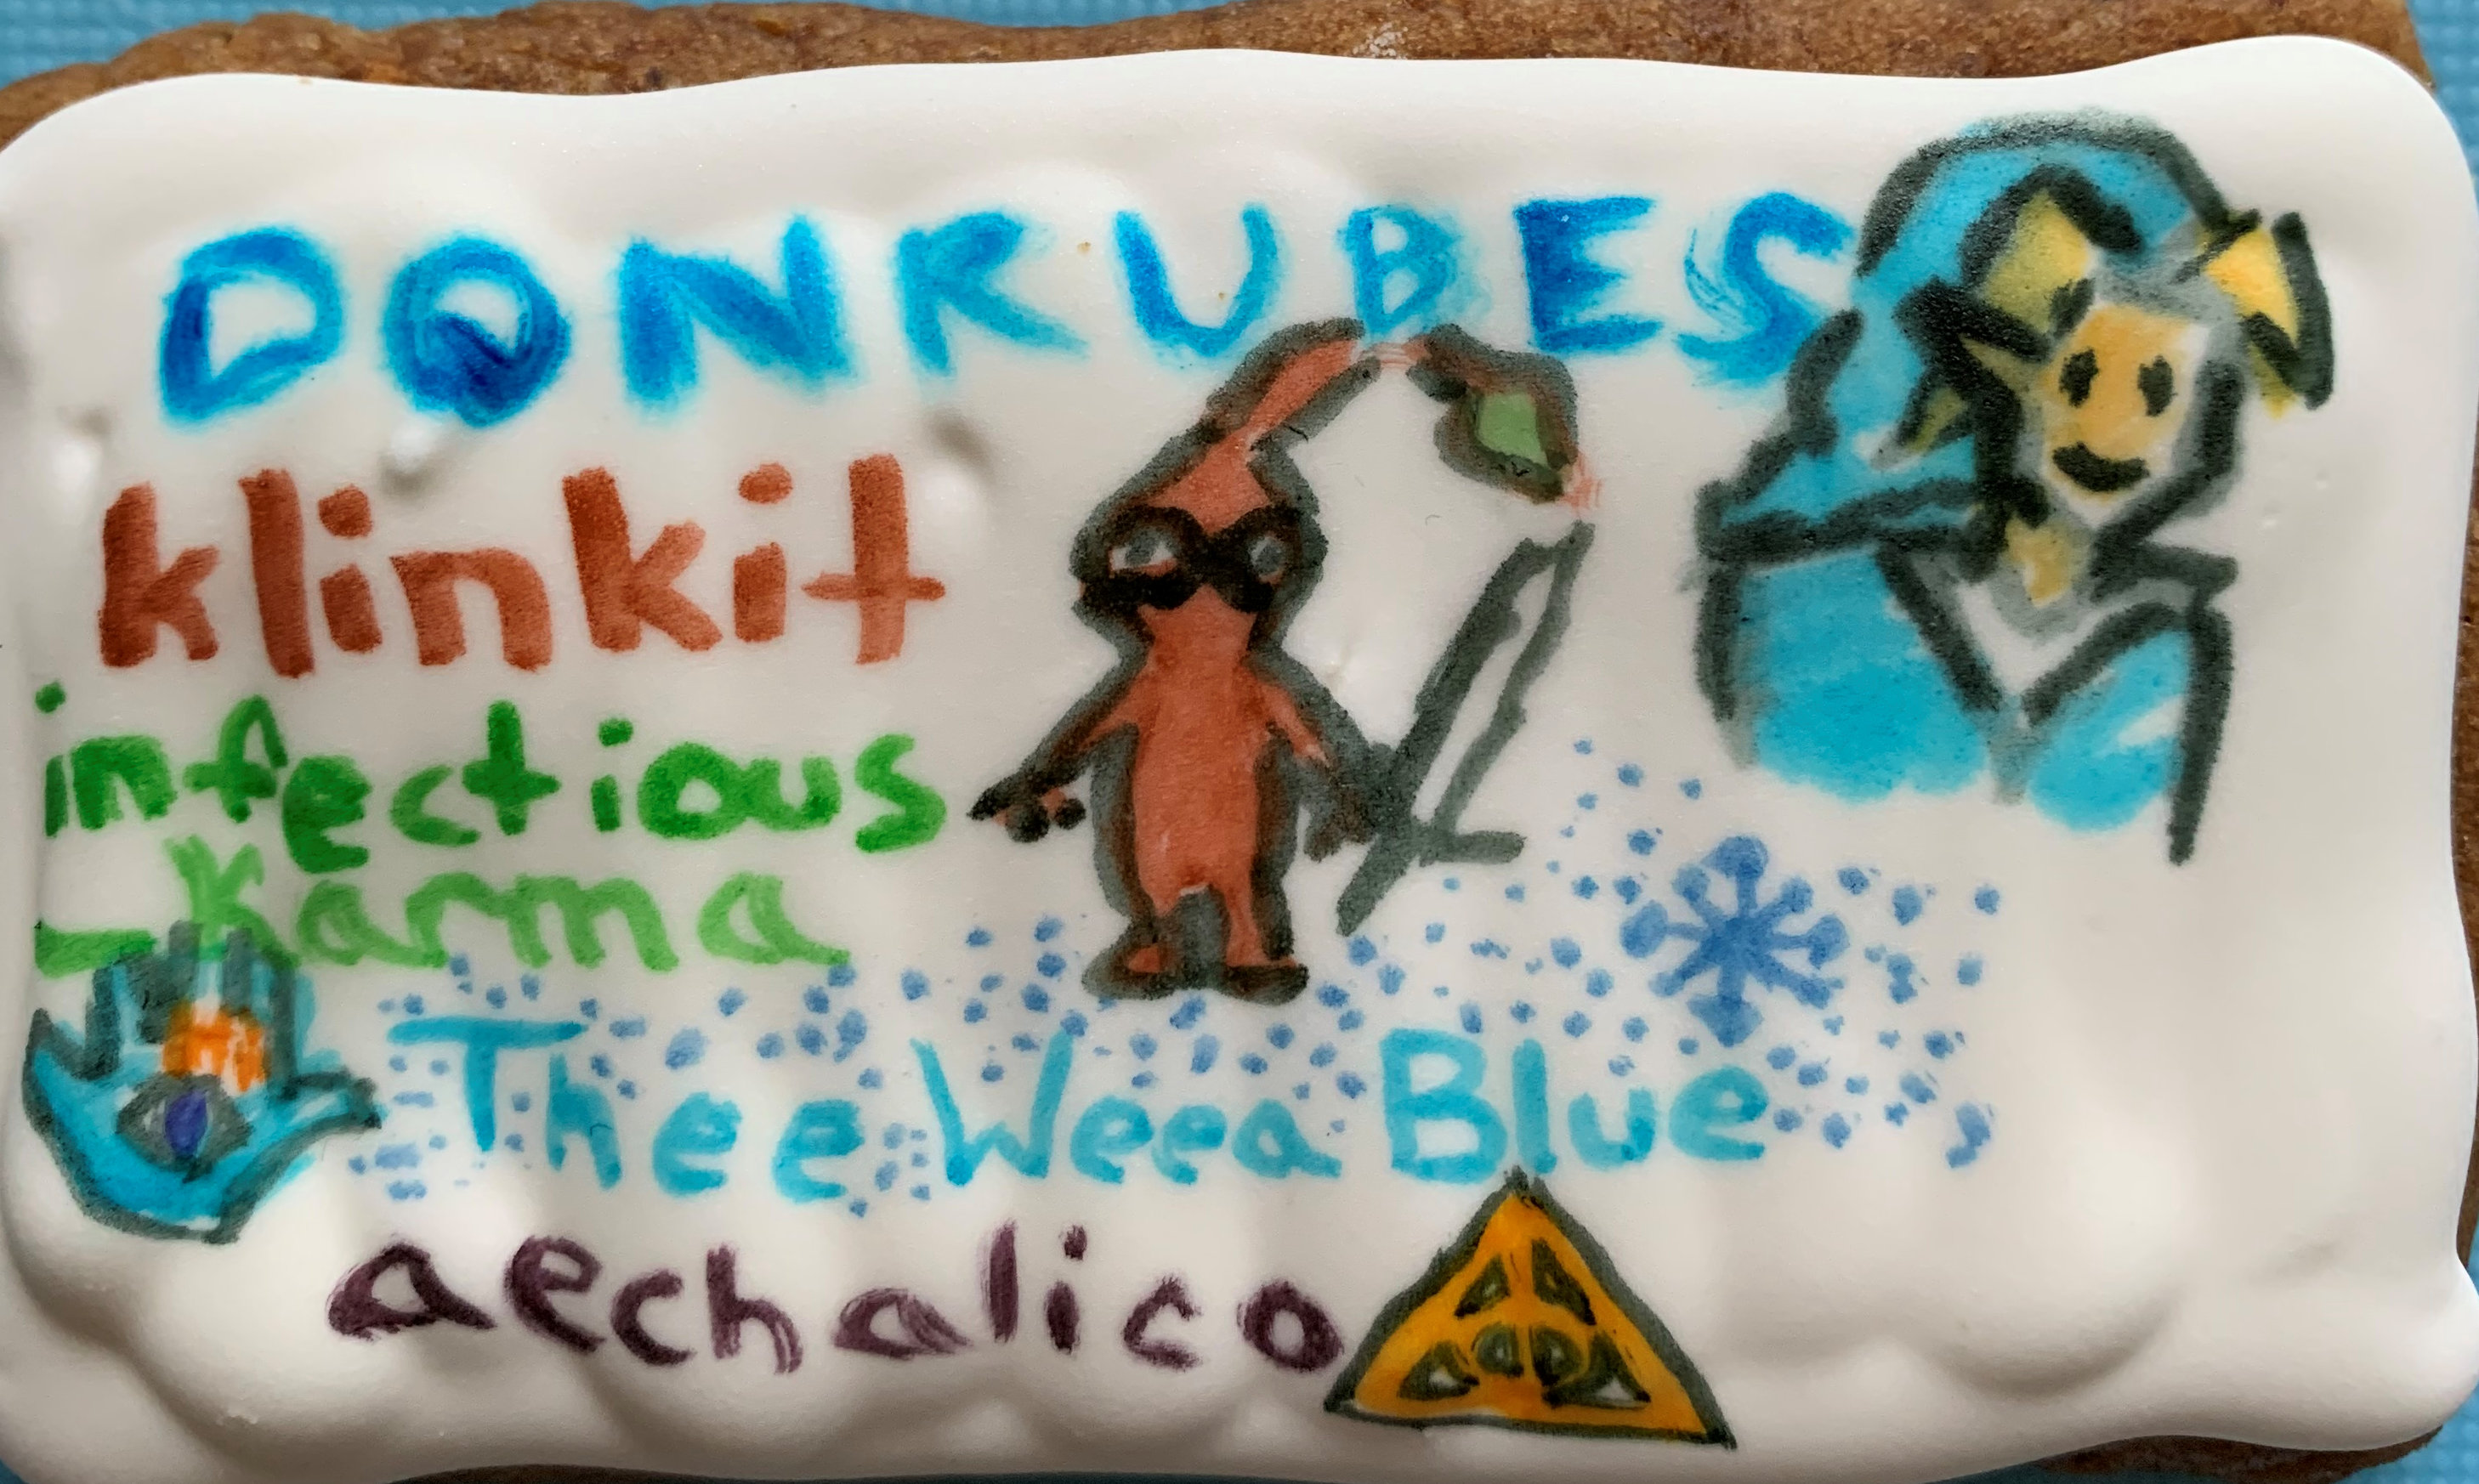 DONRUBES
klinkit
infectious
_Karma
Thee Weea Blue
aechalico